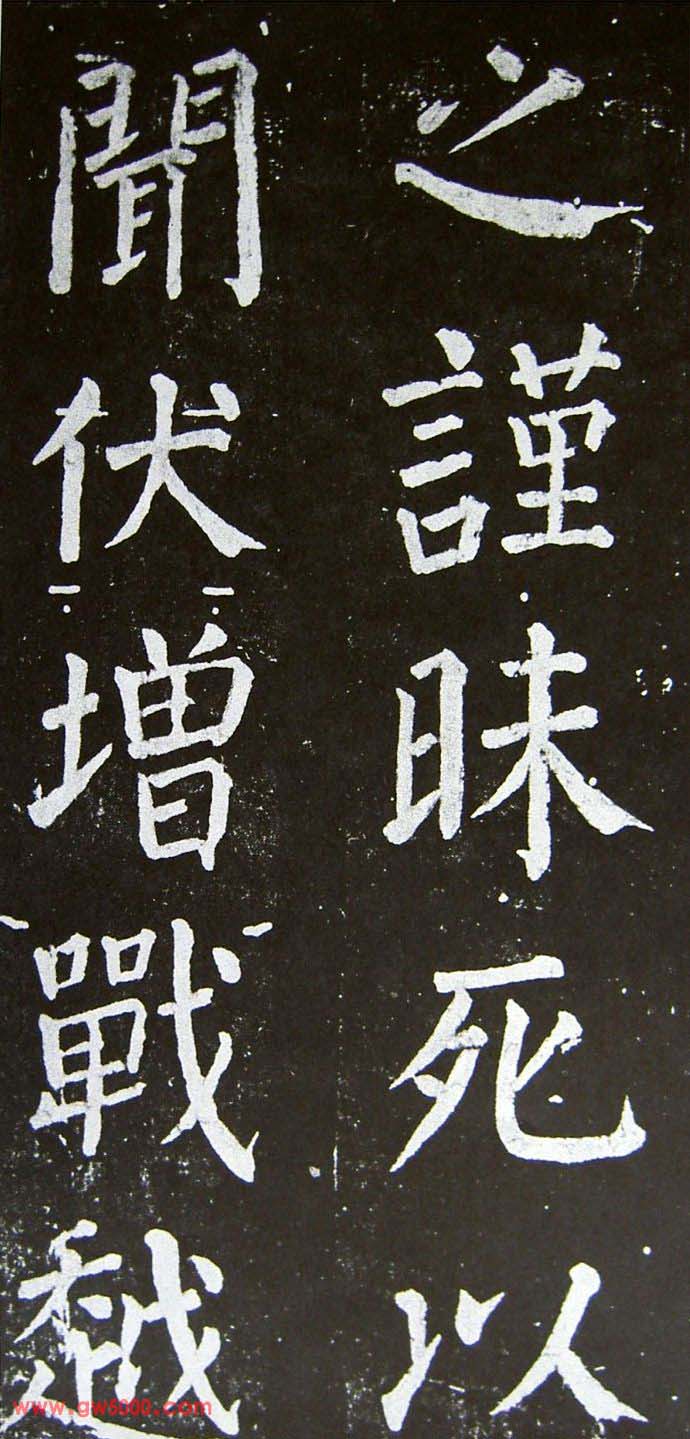 之謹昧死以
聞伏增戰越
www.gw6600.com